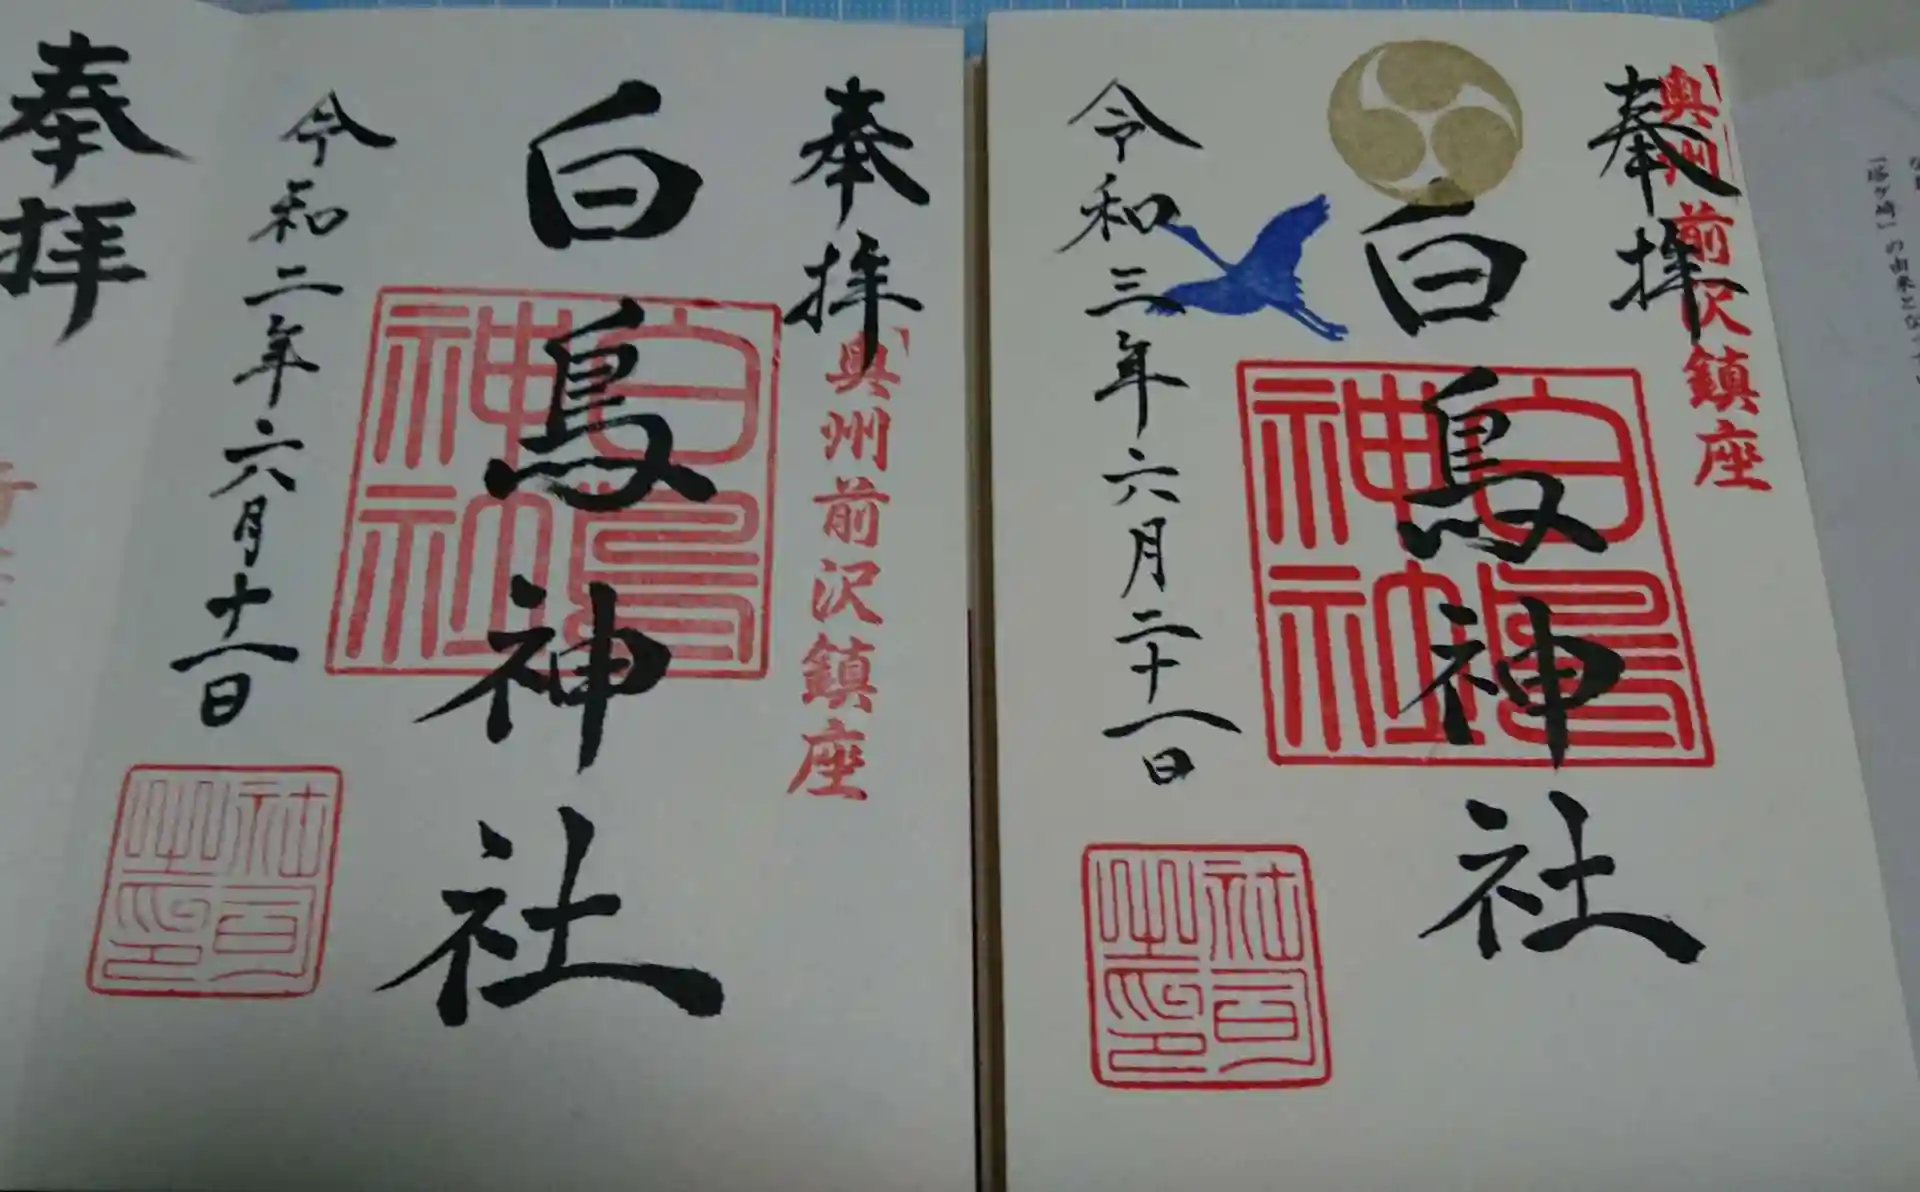 奉拝
奥州前沢鎮座
白鳥神社
白鳥神社
令和三年六月二十一日
社司之印
奉拝
奥州前沢鎮座
白鳥神社
白鳥神社
令和二年六月十一日
社司之印
奉拝